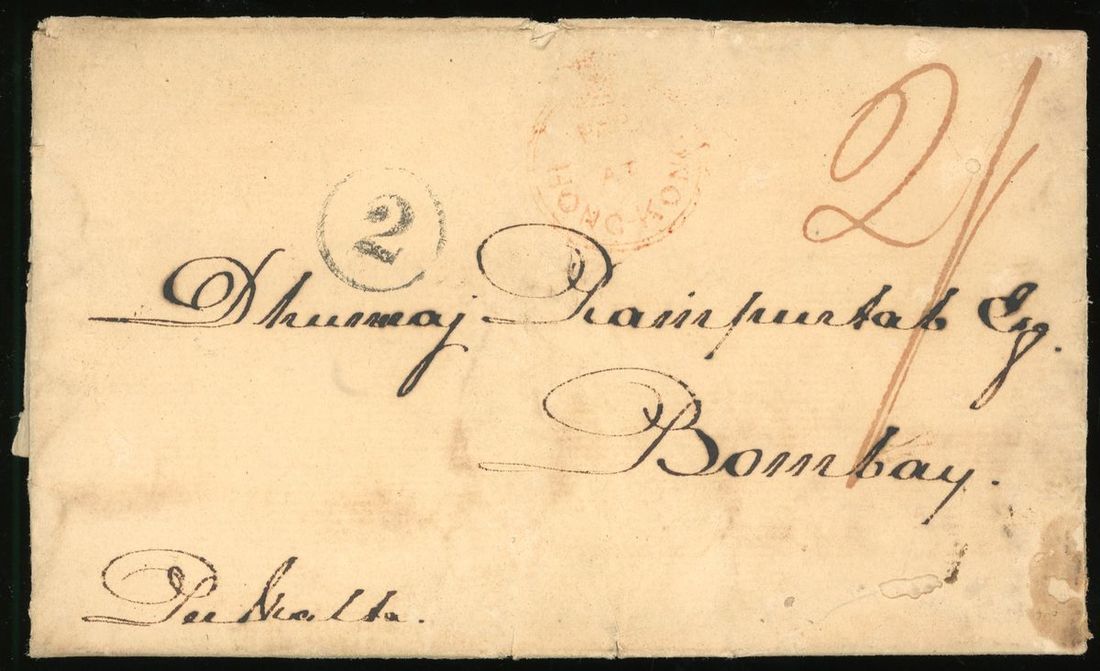 PAID
AT
HONG-KONG
2/
2
Dhunmaj Rampurtab Esq.
Bombay.
Per Malta.